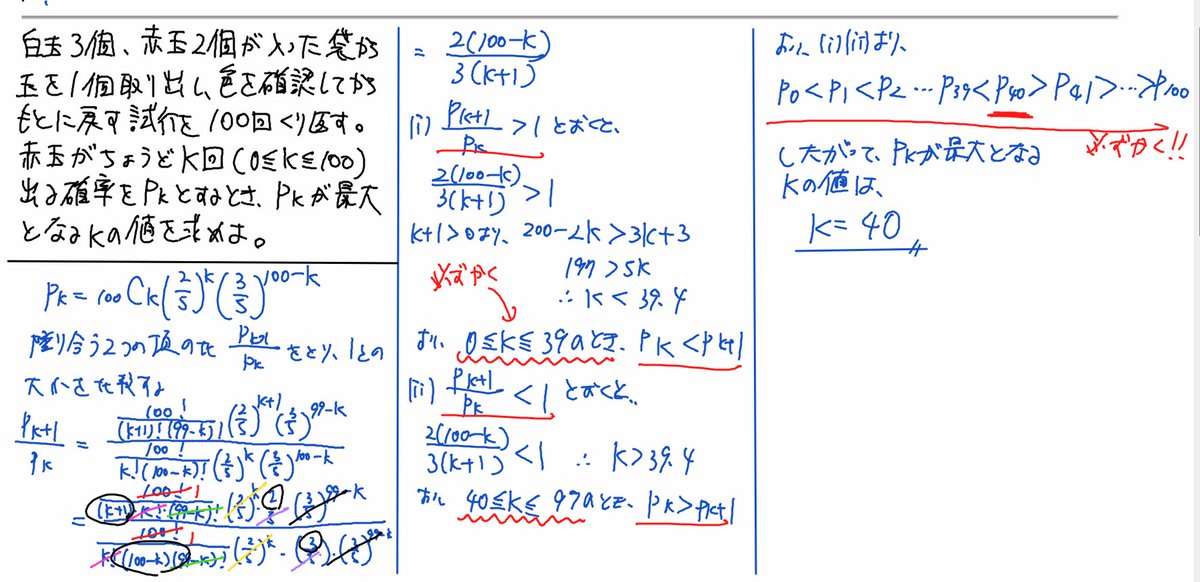 白玉3個、赤玉2個が入った袋から
玉を1個取り出し、色を確認してから
もとに戻す試行を100回くり返す。
赤玉がちょうどK回(0≦K≦100)
出る確率をPKとするとき、PKが最大
となるKの値を求めよ。
PK = 100CK (2/5)^K (3/5)^(100-K)
隣り合う2つの項の比 PK+1/PK をとり、1との
大小を比較する
PK+1/PK = {100!/((K+1)!(99-K)!) (2/5)^(K+1) (3/5)^(99-K)} / {100!/(K!(100-K)!) (2/5)^K (3/5)^(100-K)}
= {100!/((K+1) K! (99-K)!) (2/5)^K・2/5 (3/5)^(99-K)} / {100!/(K!(100-K)(99-K)!) (2/5)^K・(3/5)・(3/5)^(99-K)}
= 2(100-K)/3(K+1)
(i) PK+1/PK > 1 とおくと、
2(100-K)/3(K+1) > 1
K+1>0より、200-2K>3K+3
197>5K
∴ K < 39.4
必ずかく
より、0≦K≦39のとき、PK<PK+1
(ii) PK+1/PK < 1 とおくと、
2(100-K)/3(K+1) < 1 ∴ K>39.4
より 40≦K≦99のとき、PK>PK+1
より、(i)(ii)より、
P0<P1<P2…P39<P40>P41>…>P100
必ずかく!!
したがって、PKが最大となる
Kの値は、
K=40